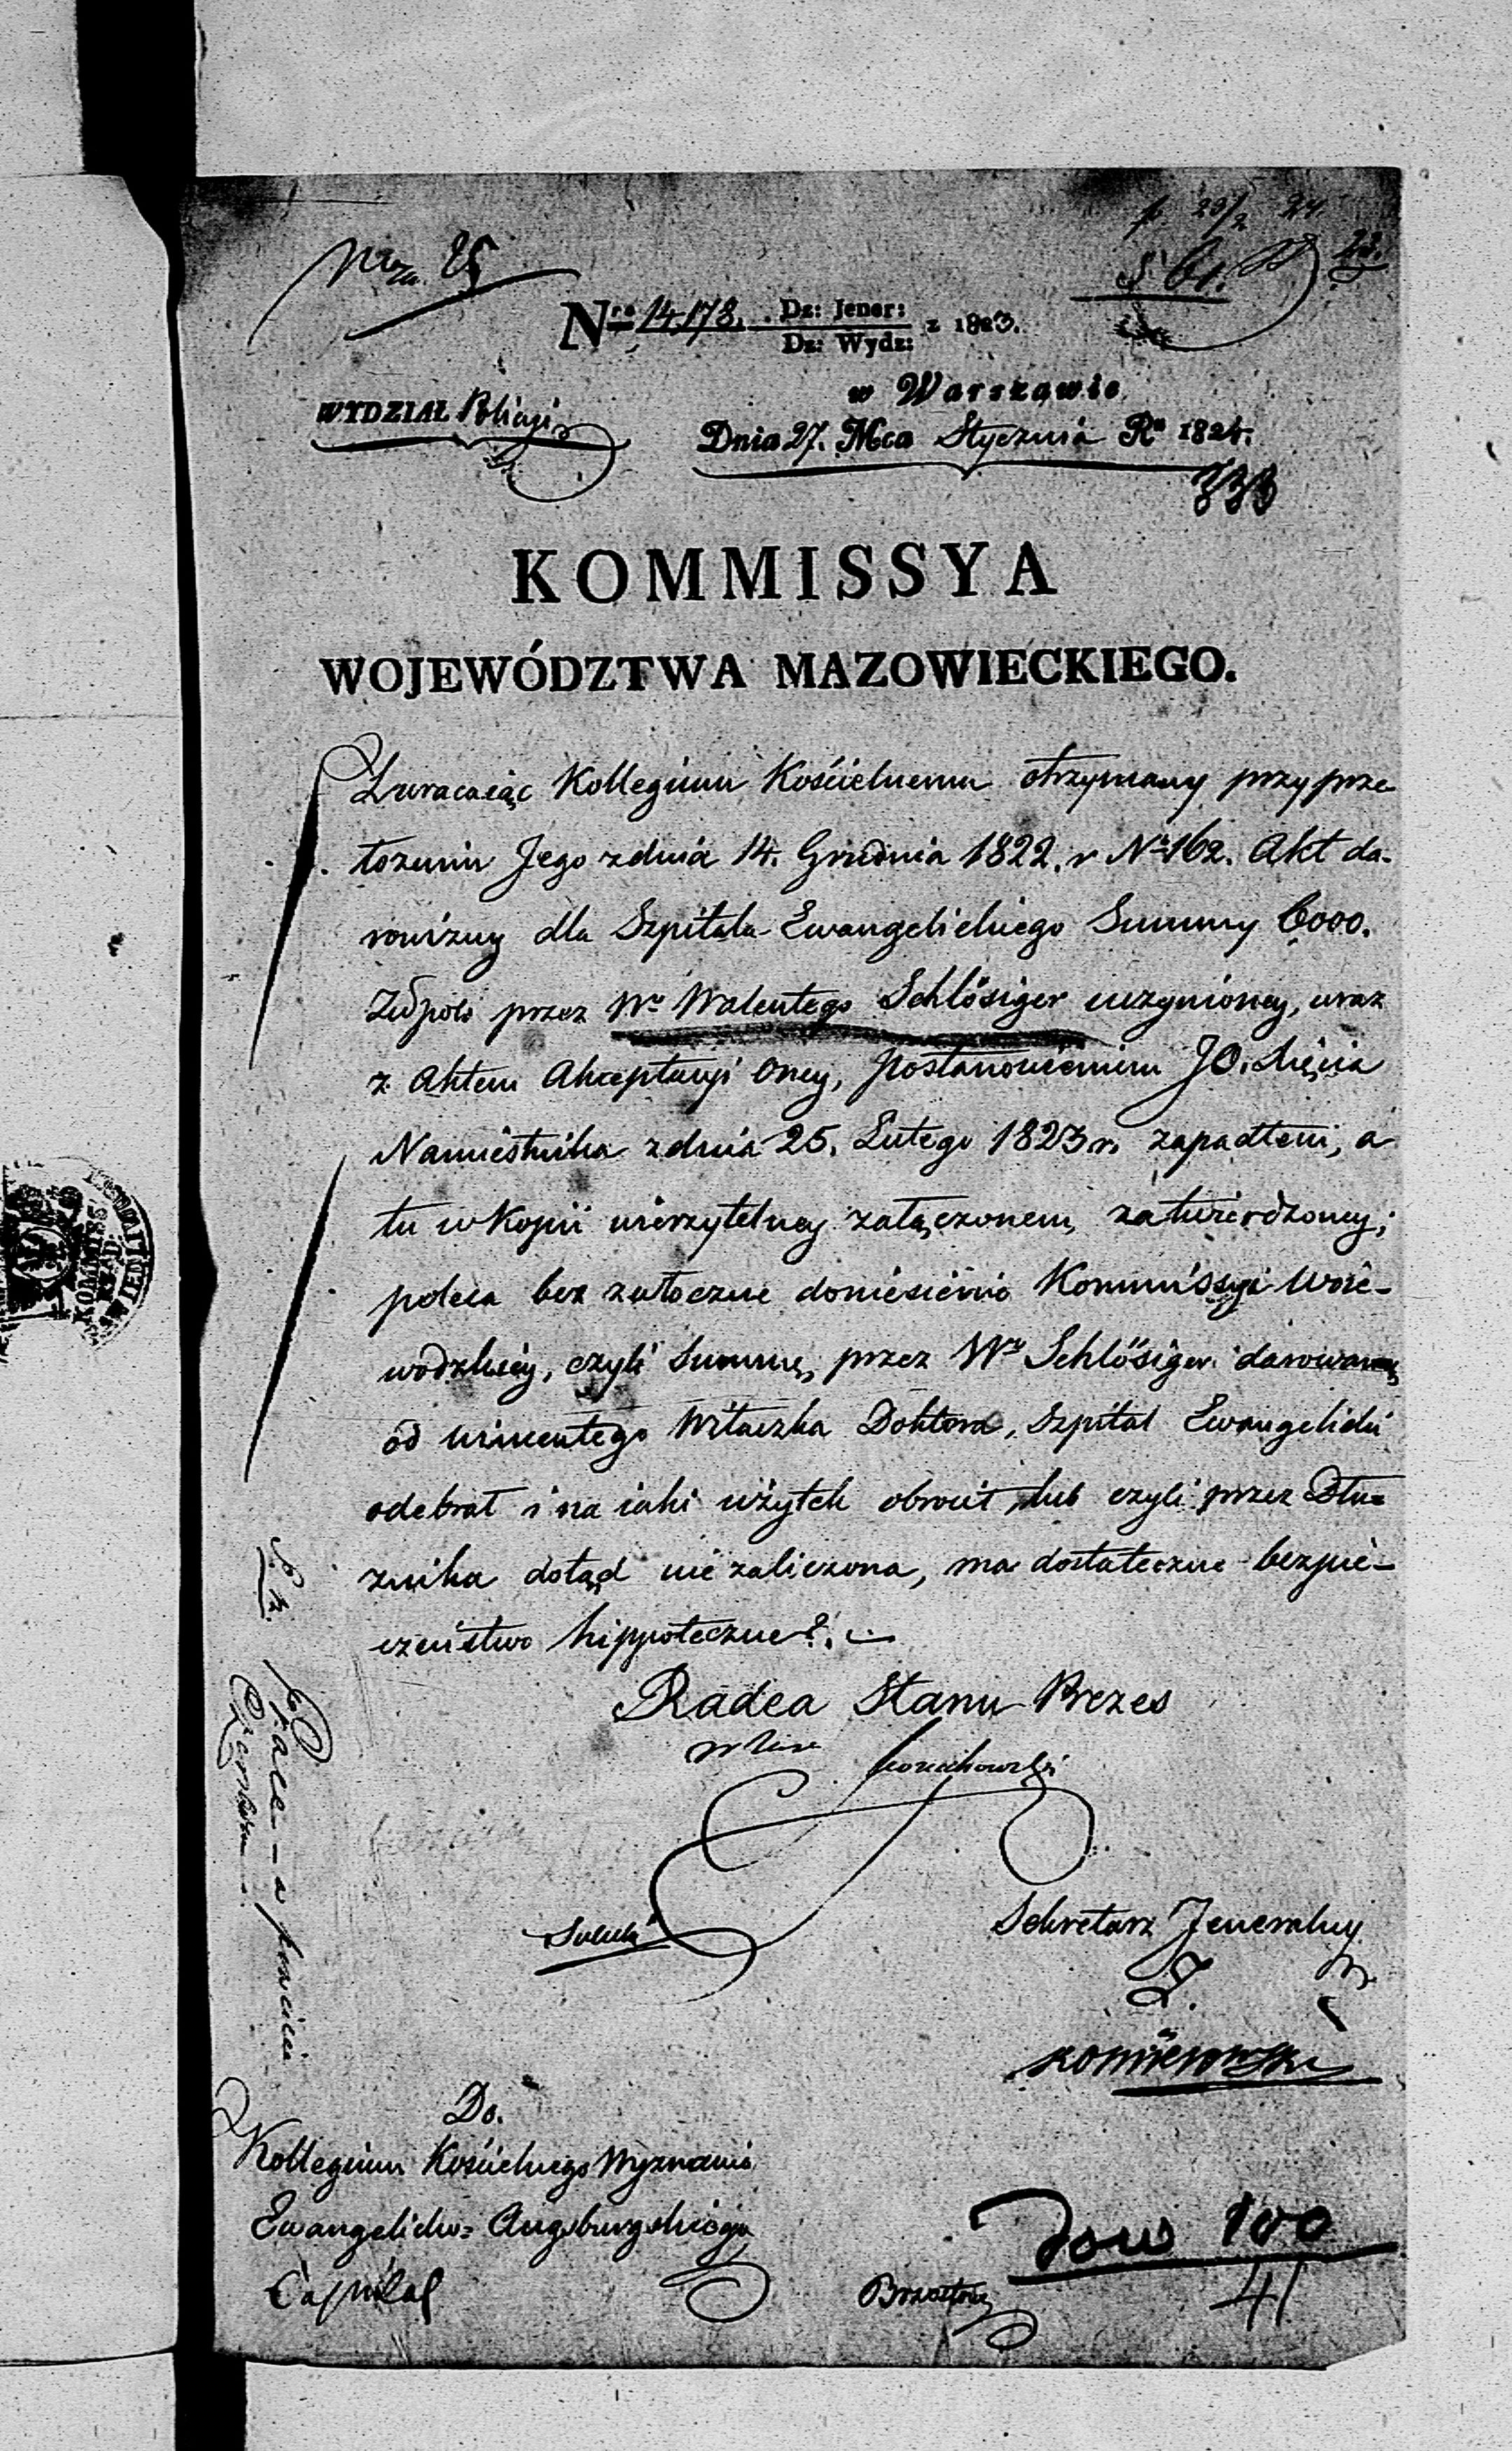 Nro 14,178. Dz: Jener: z 1823.
Dz: Wydz:
WYDZIAŁ Policyi
w Warszawie
Dnia 27. Mca Stycznia Ru 1824.
333
KOMMISSYA
WOJEWÓDZTWA MAZOWIECKIEGO.
Zwracaiąc Kollegium Kościelnemu otrzymany przy prze
łożeniu Jego z dnia 14. Grudnia 1822. r No 162. Akt da-
rowizny dla Szpitala Ewangelickiego Summy 6000.
Złpols przez Wo Walentego Schlösiger uczynioney, wraz
z Aktem Akceptacyi oney, postanowieniem JO. Xięcia
Namiestnika z dnia 25. Lutego 1823 r. zapadłem, a
tu w Kopii wierzytelney załączonem, zatwierdzoney;
poleca bez zwłoczne doniesienie Kommissyi Woie-
wodzkiey, czyli Summę, przez Wo Schlösiger darowaną
od Wincentego Witaczka Doktora, Szpital Ewangelicki
odebrał i na iaki użytek obrócił, lub czyli przez Dłu=
żnika dotąd nie zaliczona, ma dostateczne bezpie-
czeństwo hippoteczne?.
Radca Stanu Prezes
Sekretarz Jeneralny
Do.
Kollegium Kościelnego Wyznania
Ewangelicko= Augsburgskiego
Szpital
41